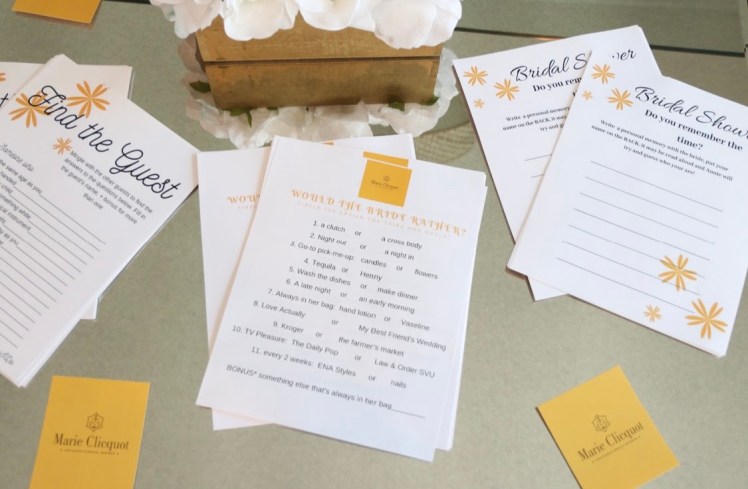 Find the Guest
Mingle with the other guests to find the
answers to the questions below. Fill in
the guest's name. + bonus for more
than one
same age as you
Marie Clicquot
WOULD THE BRIDE RATHER?
1. a clutch or a cross body
2. Night out or a night in
3. Go-to pick-me-up: candles or flowers
4. Tequila or Henny
5. Wash the dishes or make dinner
6. A late night or an early morning
7. Always in her bag: hand lotion or Vaseline
8. Love Actually or My Best Friend's Wedding
9. Kroger or the farmer's market
10. TV Pleasure: The Daily Pop or Law & Order SVU
11. every 2 weeks: ENA Styles or nails
BONUS* something else that's always in her bag________
Bridal Shower
Do you remember the
Write a personal memory with the bride, put your
name on the BACK. It may be
try and guess
Bridal Shower
Do you remember the
time?
Write a personal memory with the bride, put your
name on the BACK. It may be read aloud and Annie will
try and guess who your are!
Marie Clicquot
Marie Clicquot